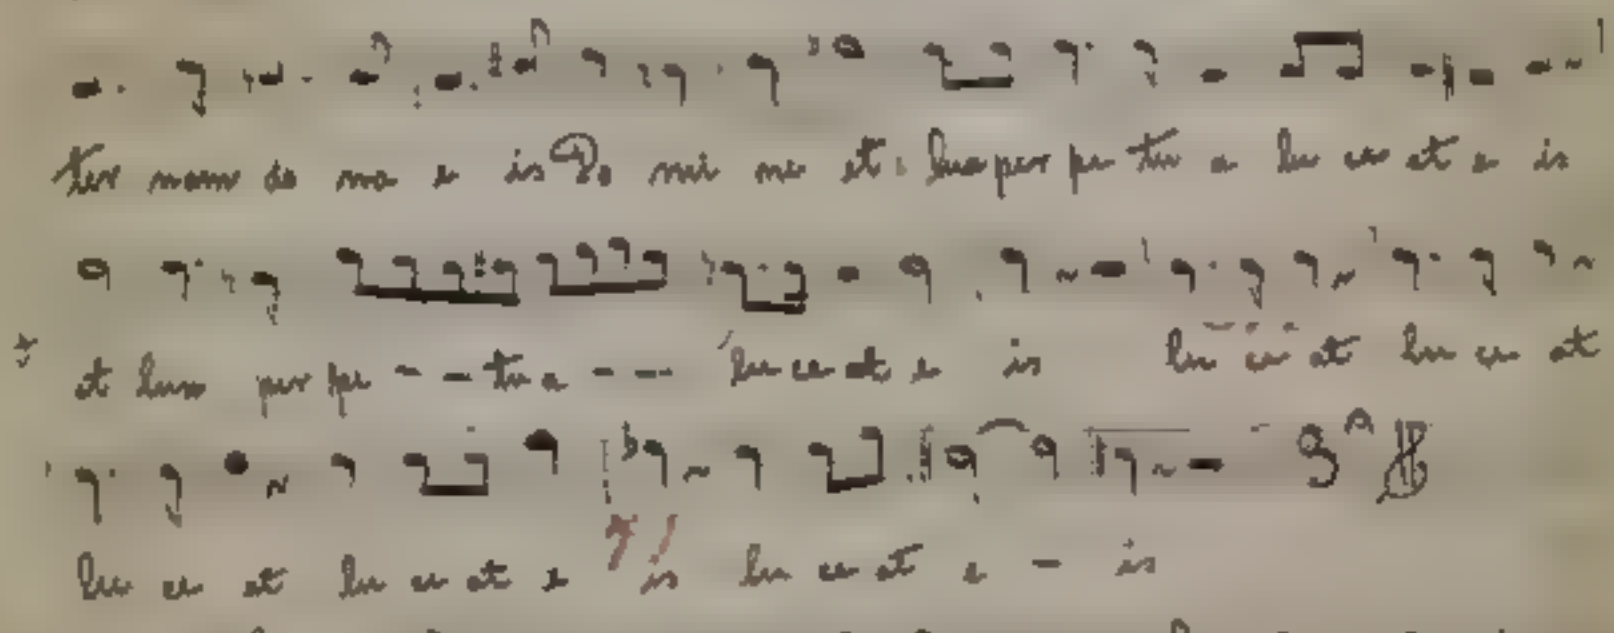 ter nam do na e is Do mi ne et lux per pe tu a lu ce at e is
et lux per pe - - tu a - - - lu ce at e is lu ce at lu ce at
lu ce at lu ce at e is lu ce at e - is